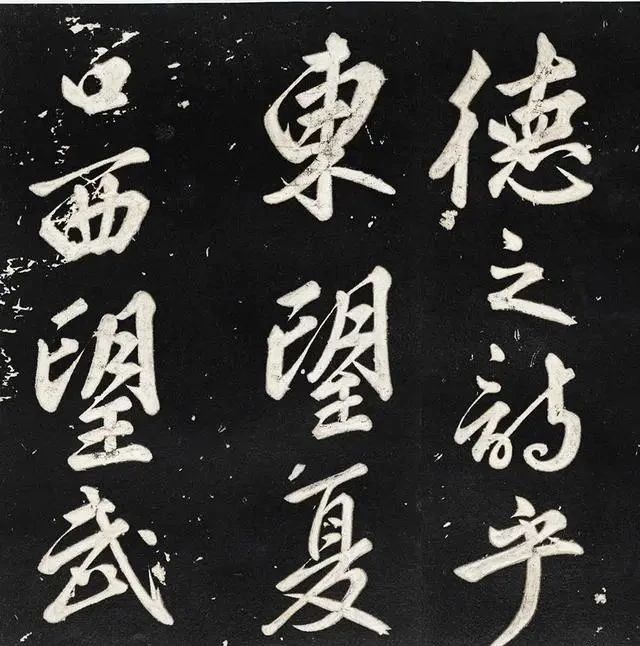 德之詩乎
東望夏
口西望武